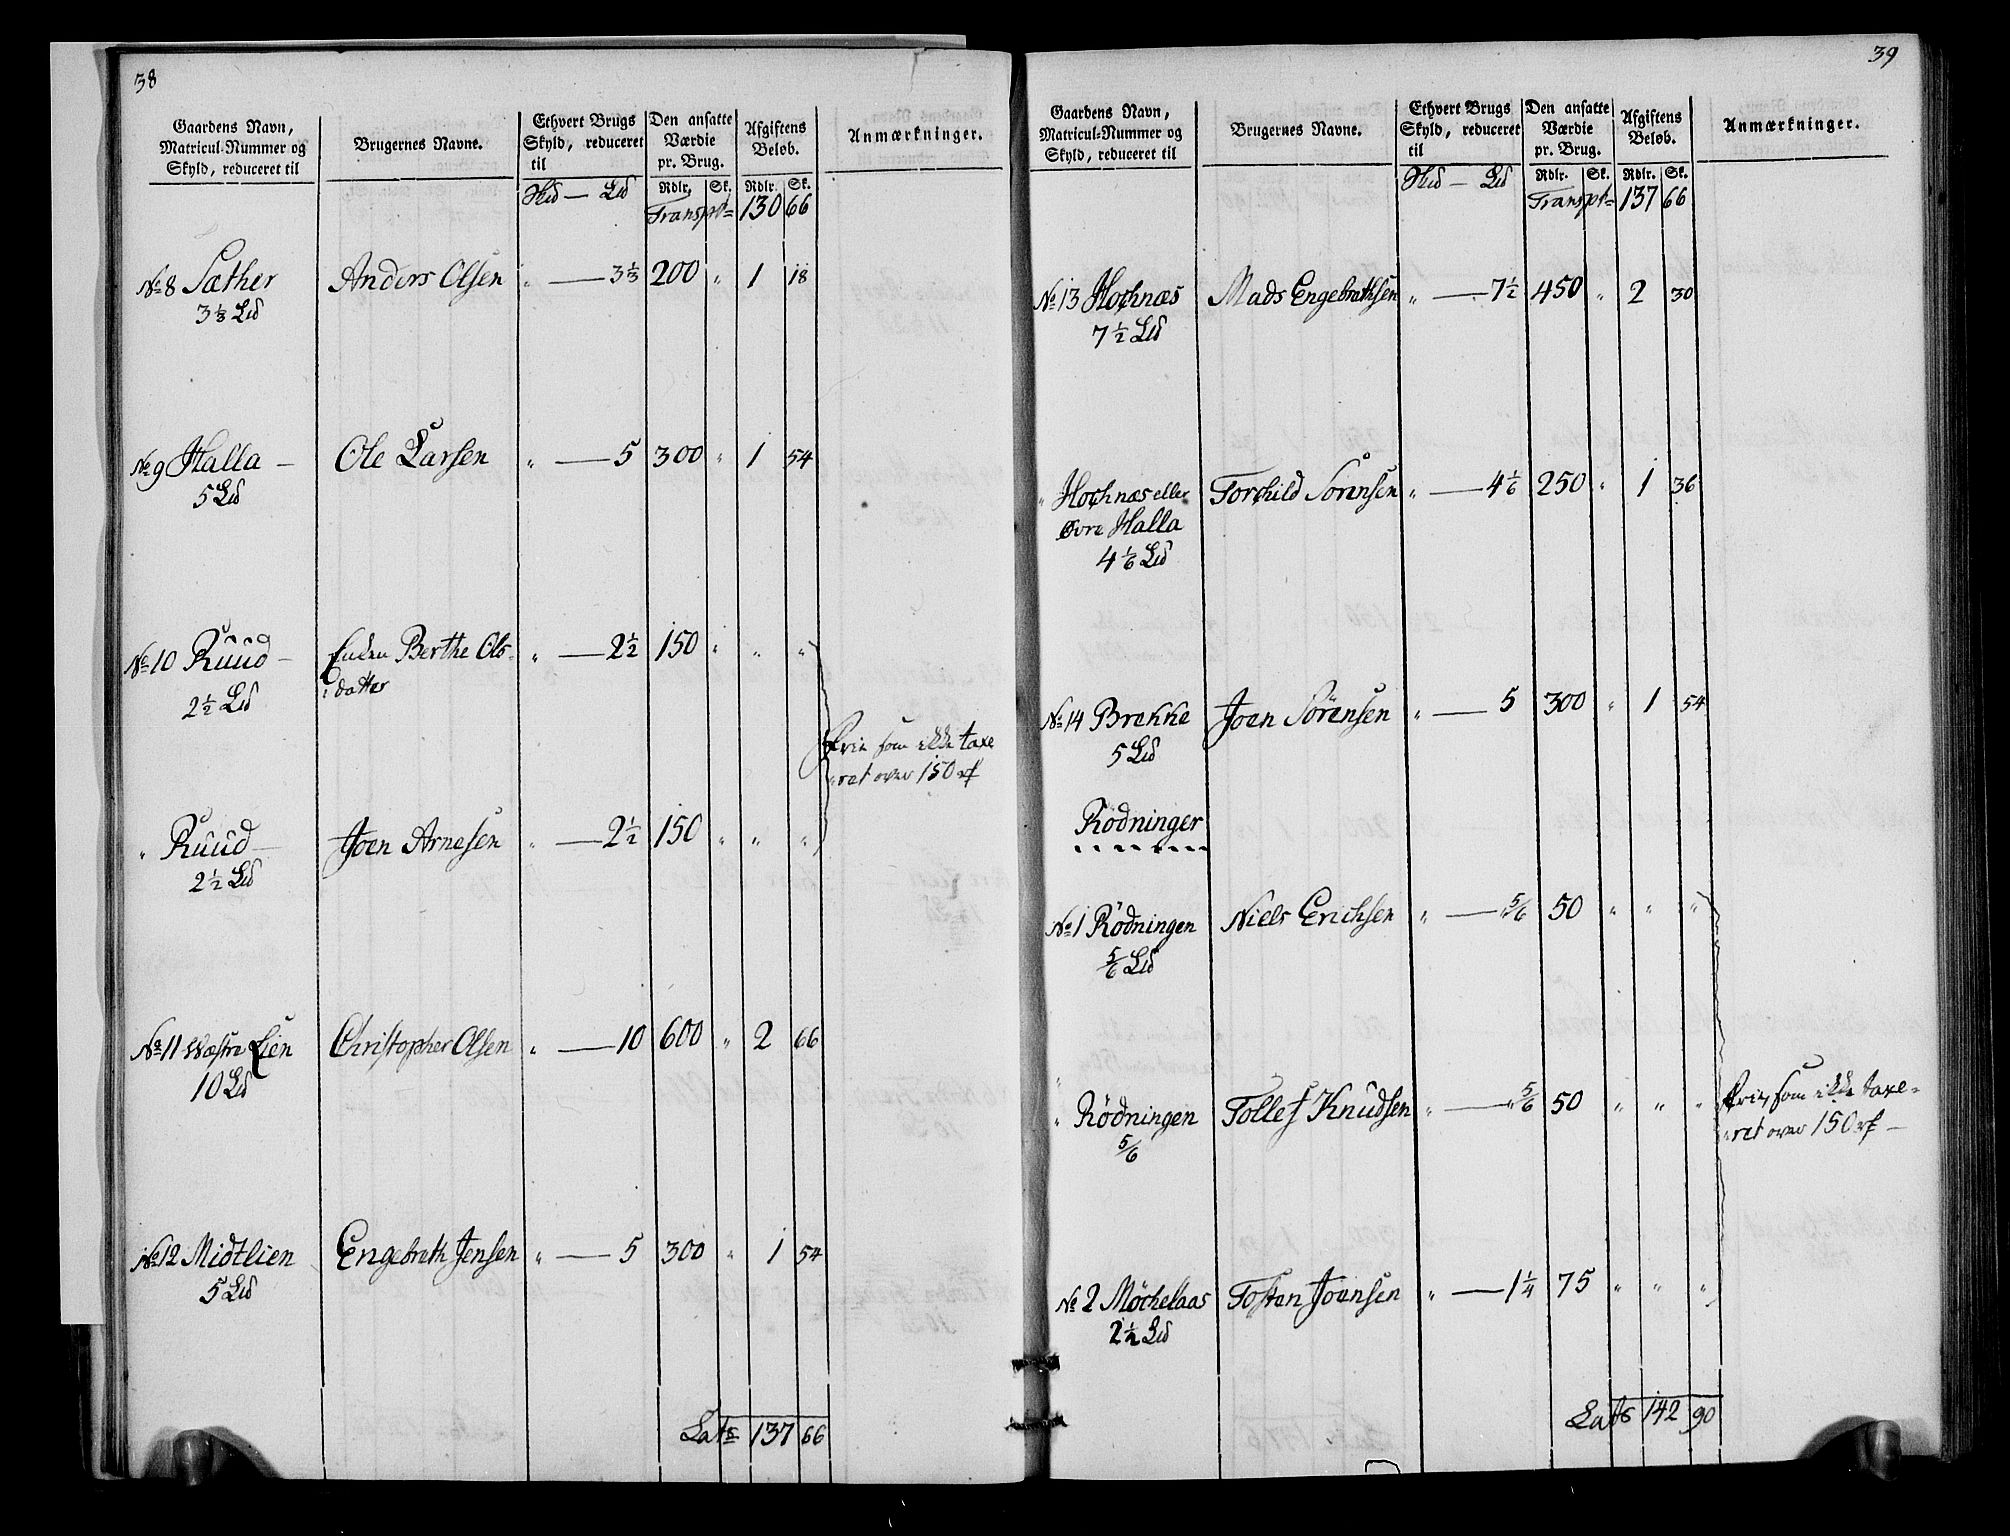 38
Gaardens Navn, Matricul-Nummer og Skyld, reduceret til
Brugernes Navne.
Ethvert Brugs Skyld, reduceret til
Den ansatte Værdie pr. Brug.
Afgiftens Beløb.
Anmærkninger.
Hud — Lɖ Rdlr. Sk. Rdlr. Sk.
Transpt= 130 66
No 8 Sæther Anders Olsen " — 3⅓ 200 " 1 18
3⅓ Lɖ
No 9 Halla — Ole Larsen " — 5 300 " 1 54
5 Lɖ
No 10 Ruud — Enken Berthe Ols- " — 2½ 150 " " "
2½ Lɖ datter
Frie som ikke taxe
ret over 150 rd
" Ruud — Joen Arnesen " — 2½ 150 " " "
2½ Lɖ
No 11 Wæstre Lien Christopher Olsen " — 10 600 " 2 66
10 Lɖ
No 12 Midtlien Engebreth Jensen " — 5 300 " 1 54
5 Lɖ
Lats 137 66
39
Gaardens Navn, Matricul-Nummer og Skyld, reduceret til
Brugernes Navne.
Ethvert Brugs Skyld, reduceret til
Den ansatte Værdie pr. Brug.
Afgiftens Beløb.
Anmærkninger.
Hud — Lɖ Rdlr. Sk. Rdlr. Sk.
Transpt= 137 66
No 13 Hochnæs Mads Engebrethsen " — 7½ 450 " 2 30
7½ Lɖ
" Hochnæs eller Torchild Sörensen " — 4⅙ 250 " 1 36
Øvre Halla
4⅙ Lɖ
No 14 Brekke Joen Sörensen " — 5 300 " 1 54
5 Lɖ
Rödninger
No 1 Rödningen Niels Erichsen " — " ⅚ 50 " " "
⅚ Lɖ
" Rödningen Tollef Knudsen " — " ⅚ 50 " " " Frie, som ikke taxe-
⅚ ret over 150 rd —
No 2 Möchelaas Tosten Joensen " — 1¼ 75 " " "
2½ Lɖ
Lats 142 90